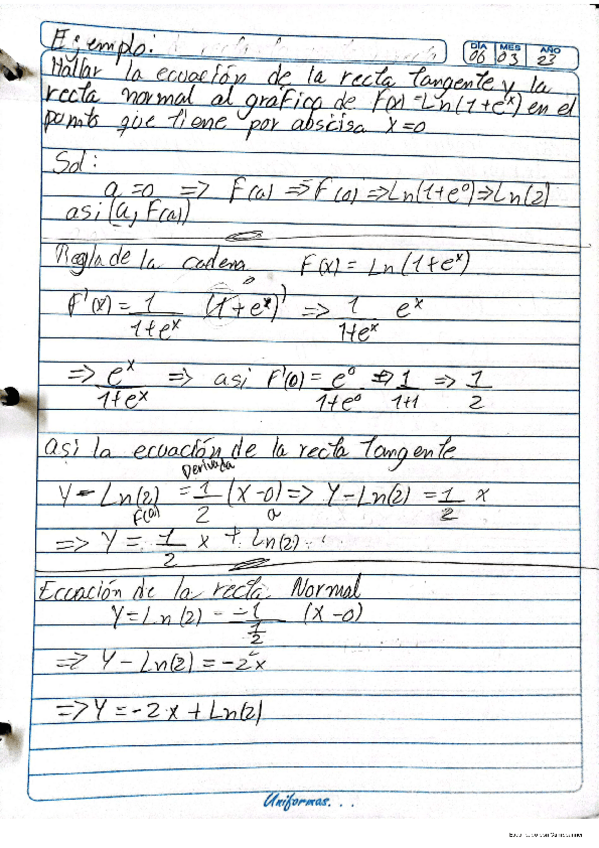 Ejemplo:
DÍA MES AÑO
06 03 23
Hallar la ecuación de la recta tangente y la
recta normal al grafico de F(x) = Ln(1+e^x) en el
punto que tiene por abscisa x=0
Sol:
a=0 => F(a) => F(0) => Ln(1+e^0) => Ln(2)
asi (a, F(a))
Regla de la cadena F(x) = Ln(1+e^x)
F'(x) = 1/(1+e^x) (1+e^x)' => 1/(1+e^x) e^x
=> e^x/(1+e^x) => asi F'(0) = e^0/(1+e^0) => 1/(1+1) => 1/2
asi la ecuación de la recta Tangente
Derivada
Y - Ln(2) = 1/2 (x-0) => Y - Ln(2) = 1/2 x
F(a) a
=> Y = 1/2 x + Ln(2)
Eccación de la recta Normal
Y = Ln(2) - -1/(1/2) (x-0)
=> Y - Ln(2) = -2x
=> Y = -2x + Ln(2)
Uniformas...